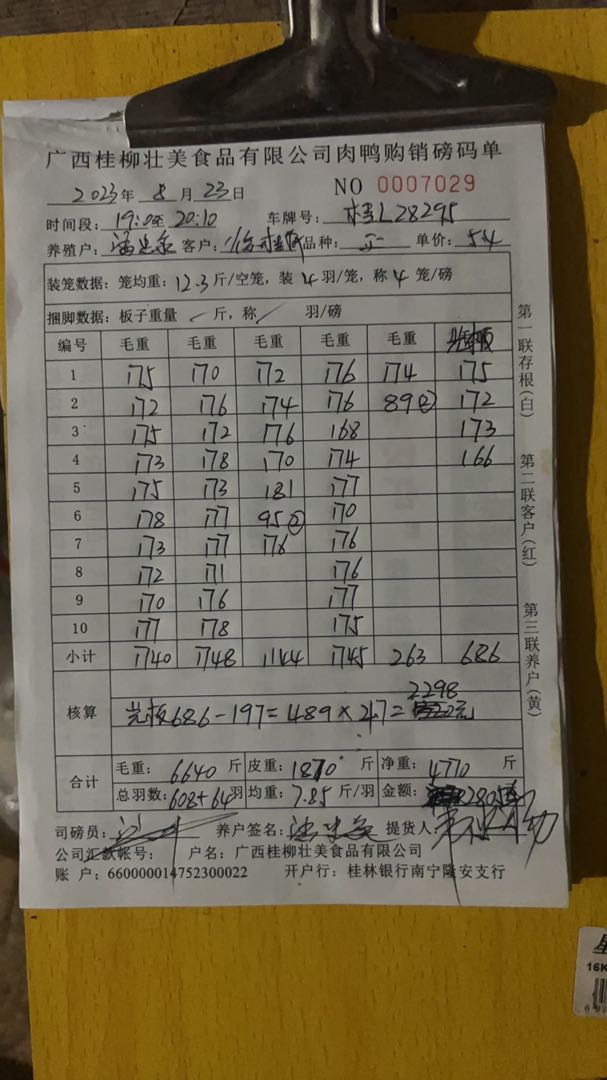 广西桂柳壮美食品有限公司肉鸭购销磅码单
2023年 8 月 23日 NO 0007029
时间段: 19:00至 20:10 车牌号: 桂L28295
养殖户: 客户: 品种: 单价: 5.4
装笼数据: 笼均重: 12.3 斤/空笼, 装 4 羽/笼, 称 4 笼/磅
捆脚数据: 板子重量 斤, 称 羽/磅
编号 毛重 毛重 毛重 毛重 毛重
1 175 170 172 176 174 175
2 172 176 174 176 89② 172
3 175 172 176 168 173
4 173 178 170 174 166
5 175 173 181 177
6 178 177 95② 170
7 173 177 176 176
8 172 171 176
9 170 176 177
10 177 178 175
小计 1740 1748 1144 1745 263 686
2298
核算 光板686-197=489×4.7= 元
合计 毛重: 6640 斤 皮重: 1870 斤 净重: 4770 斤
总羽数: 608+64羽 均重: 7.85 斤/羽 金额: 28056
司磅员: 养户签名: 提货人:
公司汇款帐号: 户名: 广西桂柳壮美食品有限公司
账 户: 660000014752300022 开户行: 桂林银行南宁隆安支行
第一联存根(白)
第二联客户(红)
第三联养户(黄)
16K